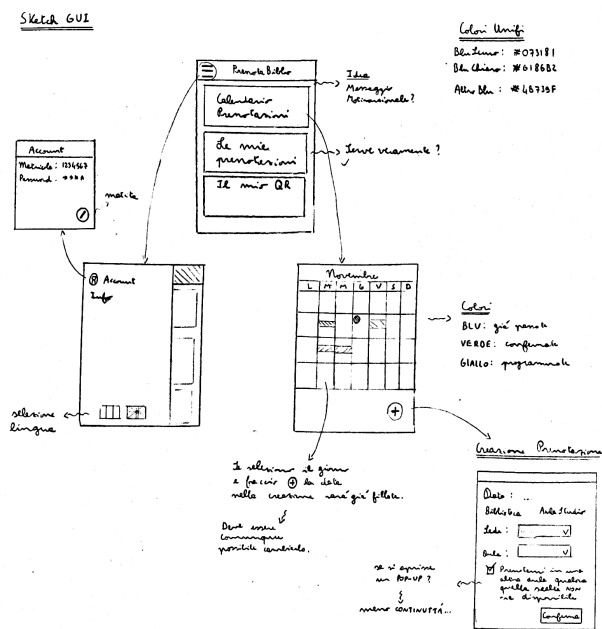 Sketch GUI
Colori Unifi
Blu Scuro: #073181
Blu Chiaro: #6186B2
Altro Blu: #4B739F
Prenota Biblio
Calendario
Prenotazioni
Le mie
prenotazioni
Il mio QR
Idea
Messaggio
Motivazionale?
Serve veramente?
Account
Matricola: 1234567
Password: ****
matita
Account
Info
selezione
lingua
Novembre
L M M G V S D
Colori
BLU: già
VERDE: confermate
GIALLO: programmate
Se seleziono il giorno
e faccio + la data
nella creazione sarà già fillata.
Deve essere
comunque
possibile cambiarla.
Creazione Prenotazione
Data: ..
Biblioteca Aula Studio
Sede:
Aula:
Prenotami in una
altra aula qualora
quella scelta NON
sia disponibile
Conferma
se si aprisse
un POP-UP?
meno CONTINUITÀ...